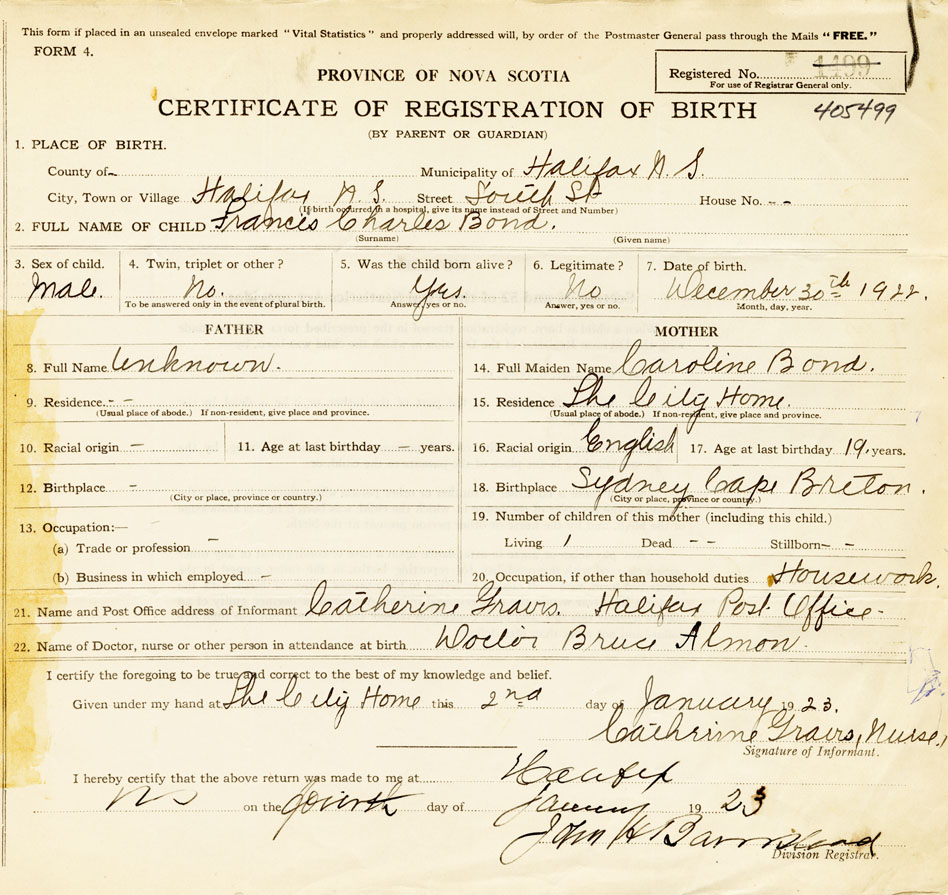 This form if placed in an unsealed envelope marked "Vital Statistics" and properly addressed will, by order of the Postmaster General pass through the Mails "FREE."
FORM 4.
PROVINCE OF NOVA SCOTIA
Registered No. 1499
For use of Registrar General only.
CERTIFICATE OF REGISTRATION OF BIRTH 405499
(BY PARENT OR GUARDIAN)
1. PLACE OF BIRTH.
County of - Municipality of Halifax N. S.
City, Town or Village Halifax N. S. Street South St House No. - -
(If birth occurred in a hospital, give its name instead of Street and Number)
2. FULL NAME OF CHILD Frances Charles Bond.
(Surname) (Given name)
3. Sex of child. 4. Twin, triplet or other? 5. Was the child born alive? 6. Legitimate? 7. Date of birth.
Male. No. Yes. No December 30th 1922.
To be answered only in the event of plural birth. Answer, yes or no. Answer, yes or no. Month, day, year.
FATHER MOTHER
8. Full Name Unknown. 14. Full Maiden Name Caroline Bond.
9. Residence. - - 15. Residence The City Home.
(Usual place of abode.) If non-resident, give place and province. (Usual place of abode.) If non-resident, give place and province.
10. Racial origin - 11. Age at last birthday - years. 16. Racial origin English 17. Age at last birthday 19, years.
12. Birthplace - 18. Birthplace Sydney Cape Breton.
(City or place, province or country.) (City or place, province or country.)
13. Occupation:— 19. Number of children of this mother (including this child.)
(a) Trade or profession - Living 1 Dead - - Stillborn - -
(b) Business in which employed - 20. Occupation, if other than household duties Housework.
21. Name and Post Office address of Informant Catherine Halifax Post Office -
22. Name of Doctor, nurse or other person in attendance at birth Doctor Bruce Almon.
I certify the foregoing to be true and correct to the best of my knowledge and belief.
Given under my hand at The City Home this 2nd day of January 1923.
Catherine Nurse,
Signature of Informant.
I hereby certify that the above return was made to me at Halifax
NS on the fourth day of January 1923
John H
Division Registrar.